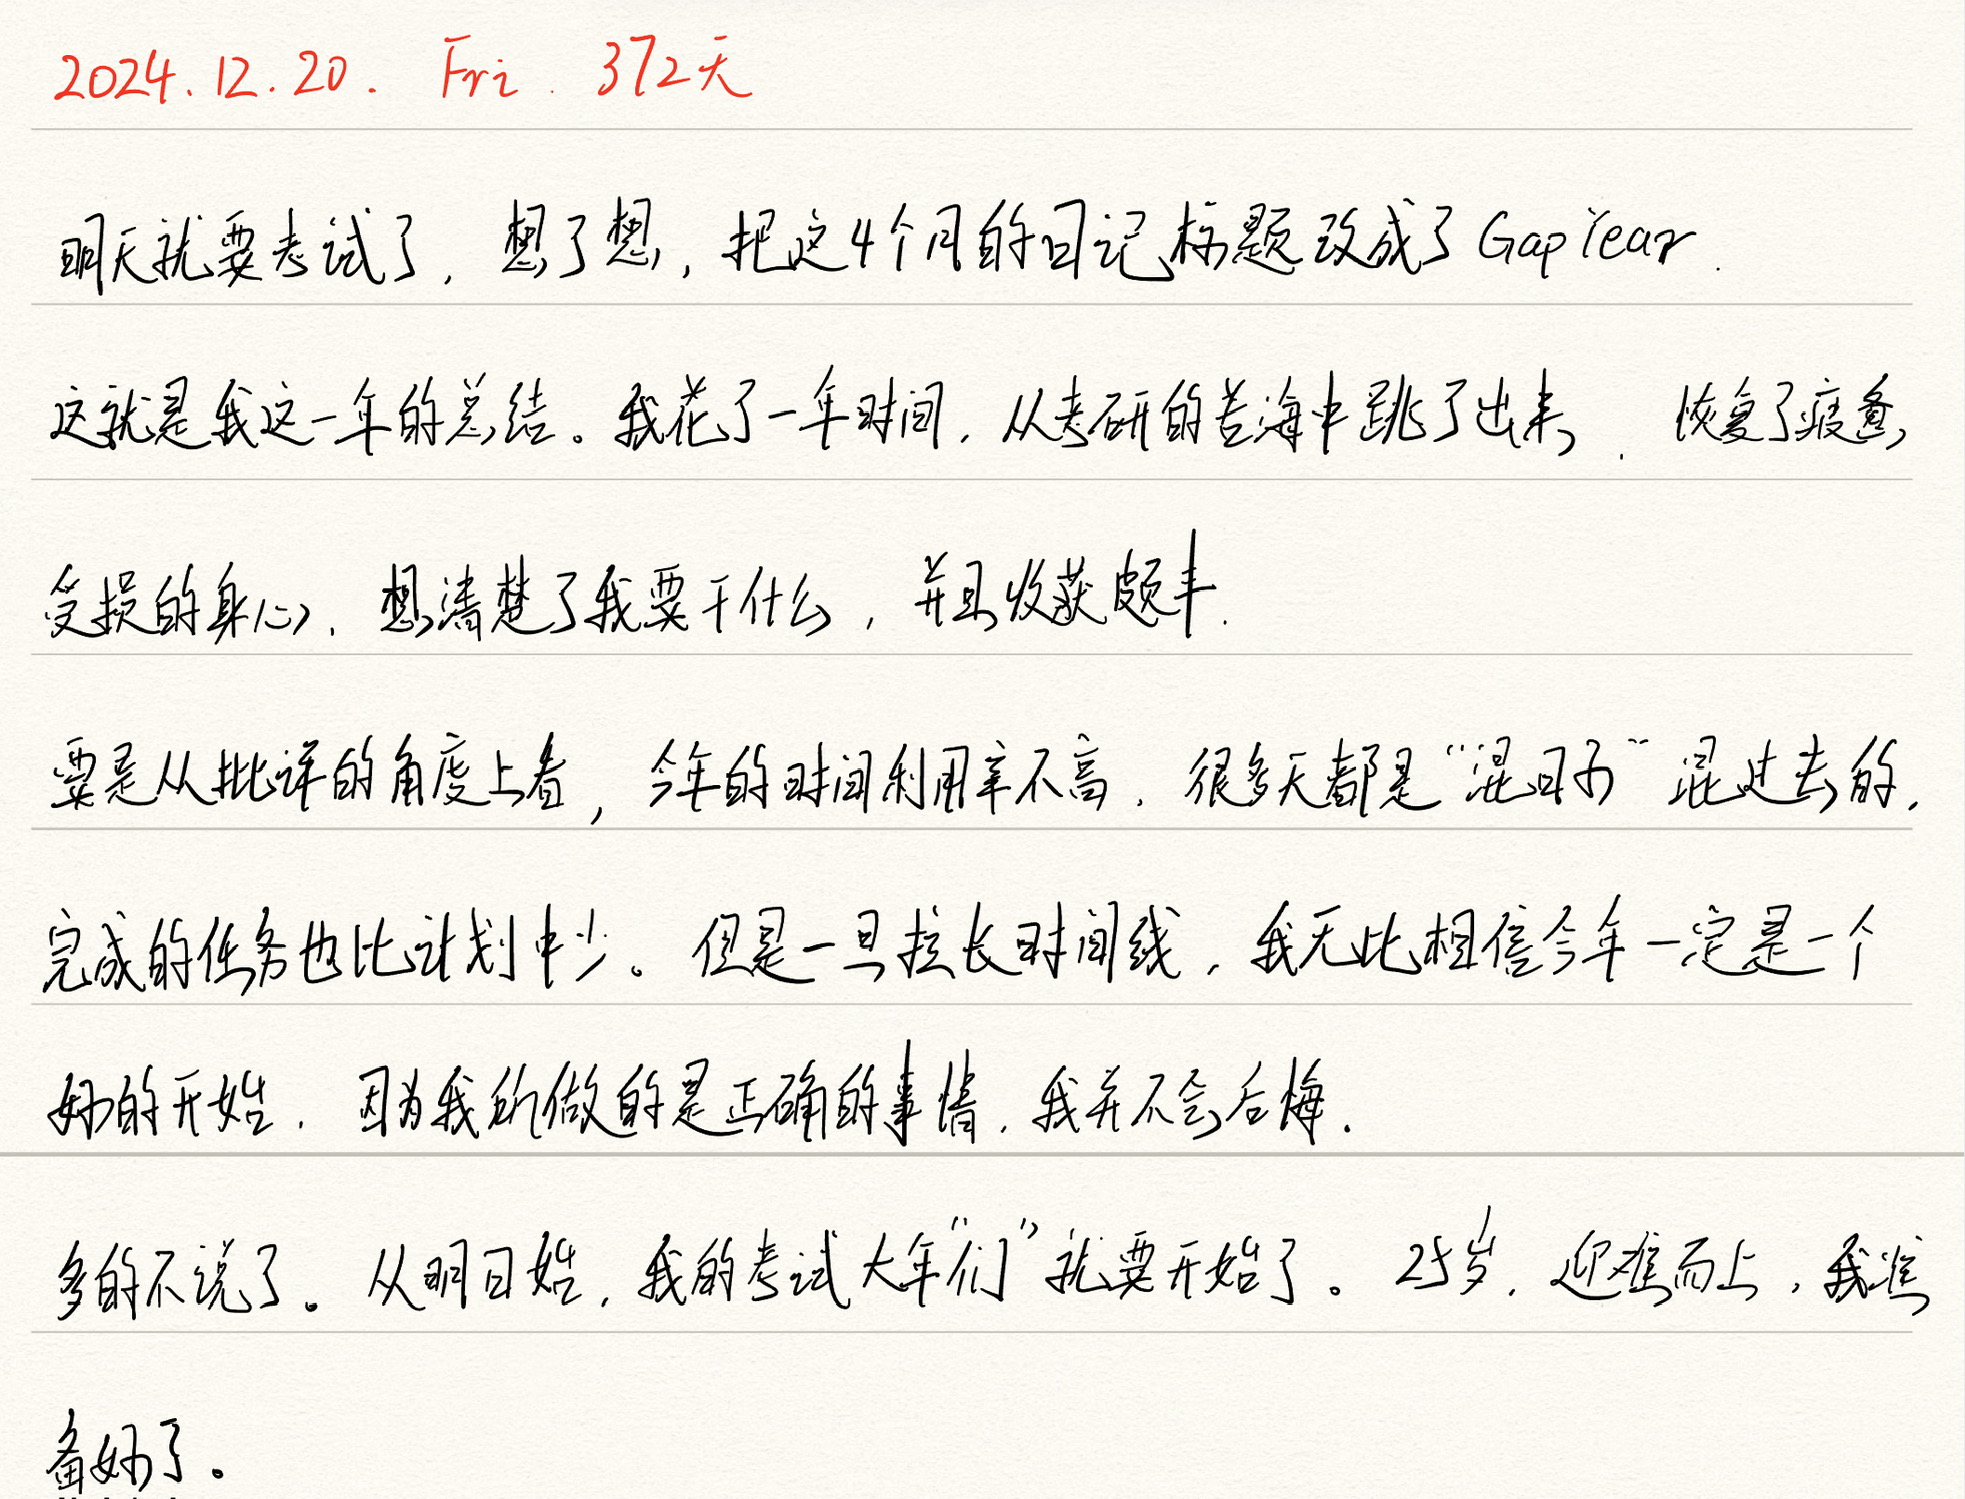 2024.12.20. Fri. 372天
明天就要考试了，想了想，把这4个月的日记标题改成了Gap Year.
这就是我这一年的总结。我花了一年时间，从考研的苦海中跳了出来，恢复了疲惫
受损的身心，想清楚了我要干什么，并且收获颇丰.
要是从批评的角度上看，今年的时间利用率不高，很多天都是“混日子”混过去的，
完成的任务也比计划中少。但是一旦拉长时间线，我无比相信今年一定是一个
好的开始，因为我所做的是正确的事情，我并不会后悔.
多的不说了。从明日始，我的考试大年“们”就要开始了。25岁，迎难而上，我准
备好了。